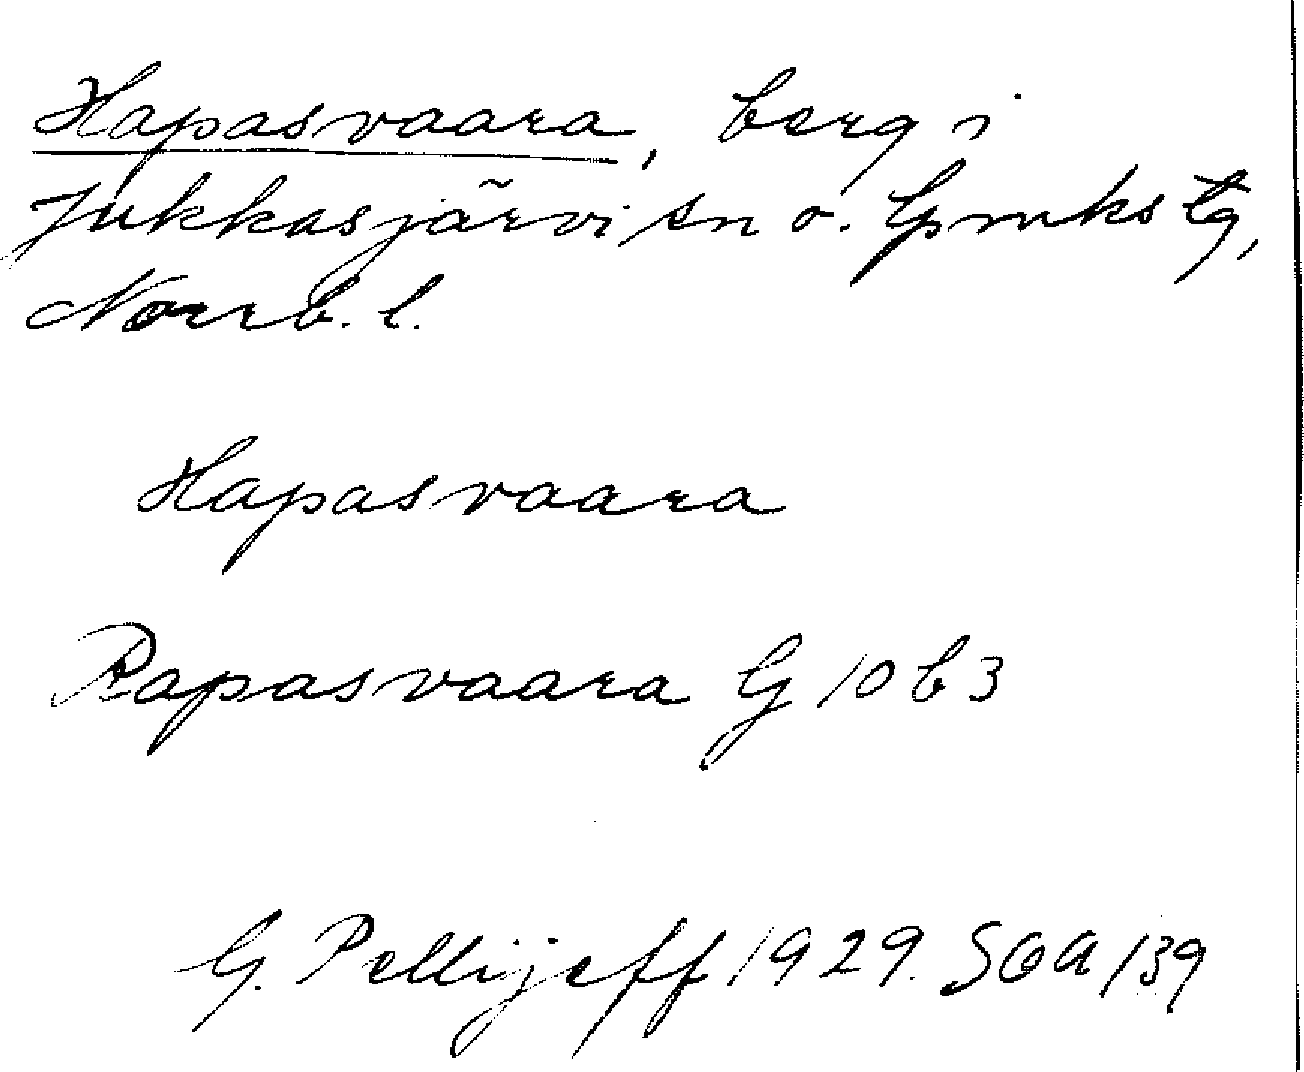 Hapasvaara, berg i
Jukkasjärvi sn o. Gpmks tg,
Norrb. l.
Hapasvaara
Rapasvaara G 10 b 3
G. Pellijeff 1929. SOA /39